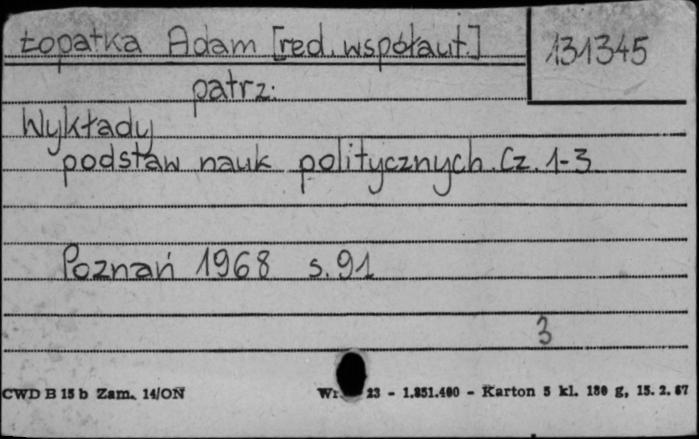 Łopatka Adam [red. współaut.]
131345
patrz:
Wykłady
podstaw nauk politycznych. Cz. 1-3
Poznań 1968 s. 91
3
CWD B 15 b Zam. 14/ON
23 - 1.851.400 - Karton 5 kl. 180 g, 15. 2. 67